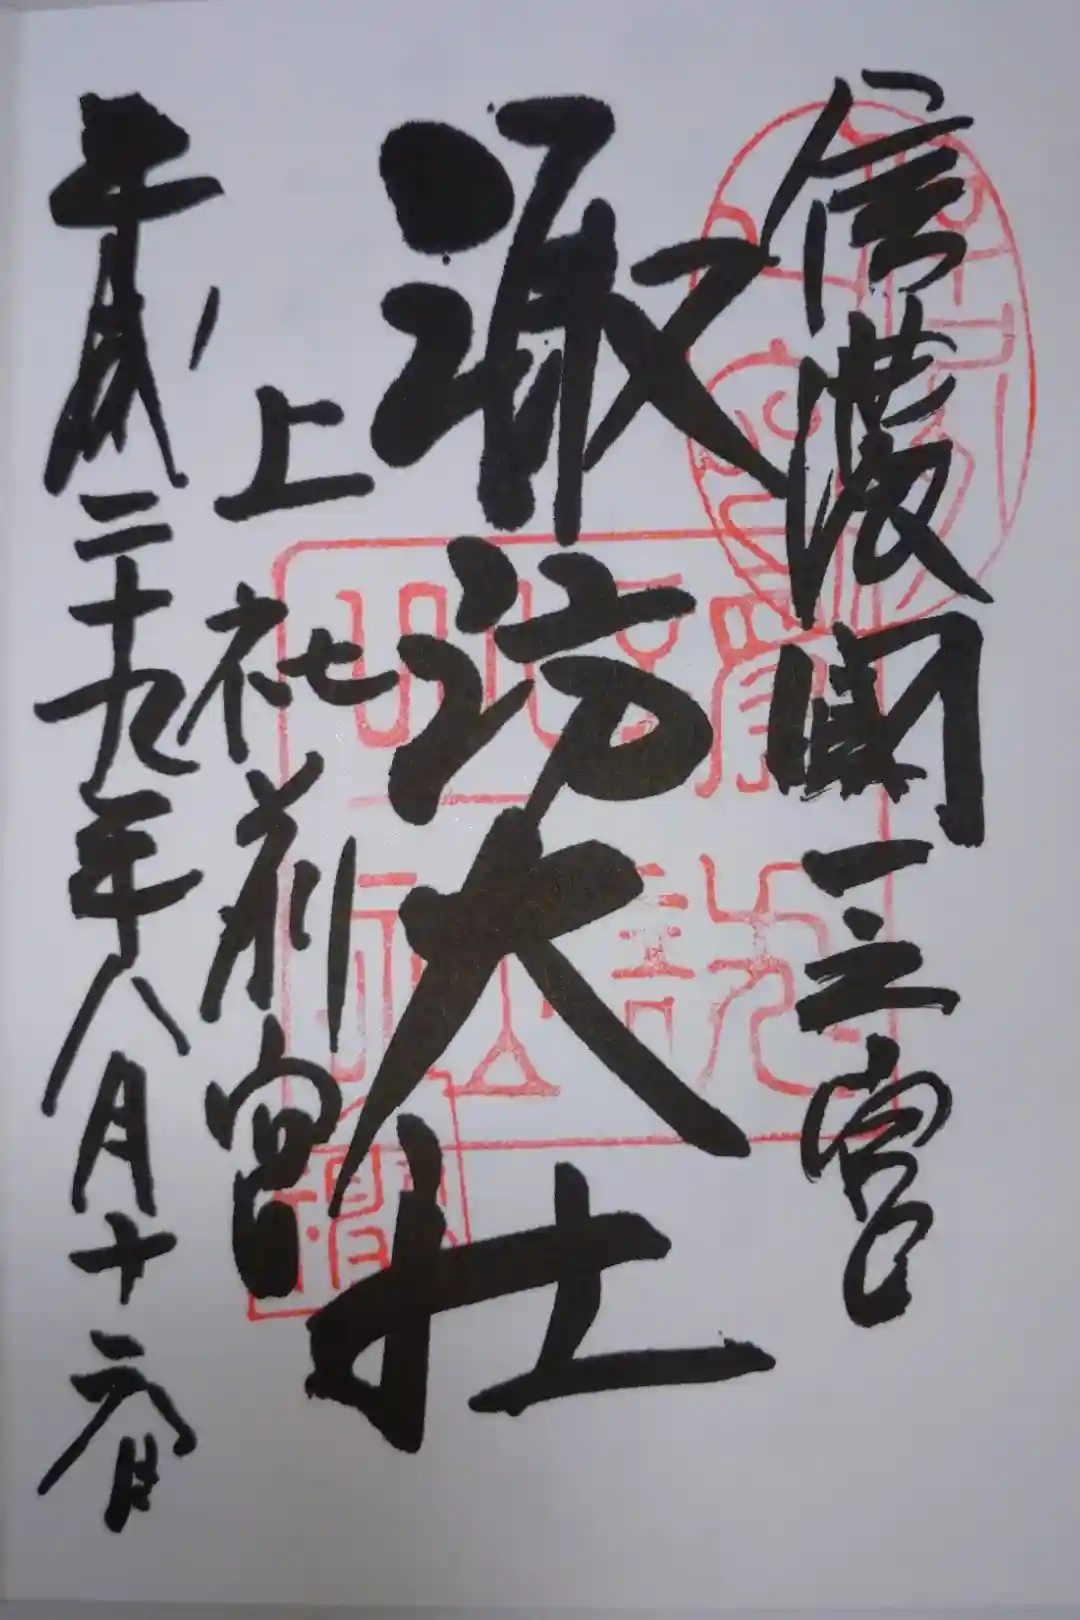 信濃國一之宮
諏訪大社
上社前宮
平成二十九年八月十六日